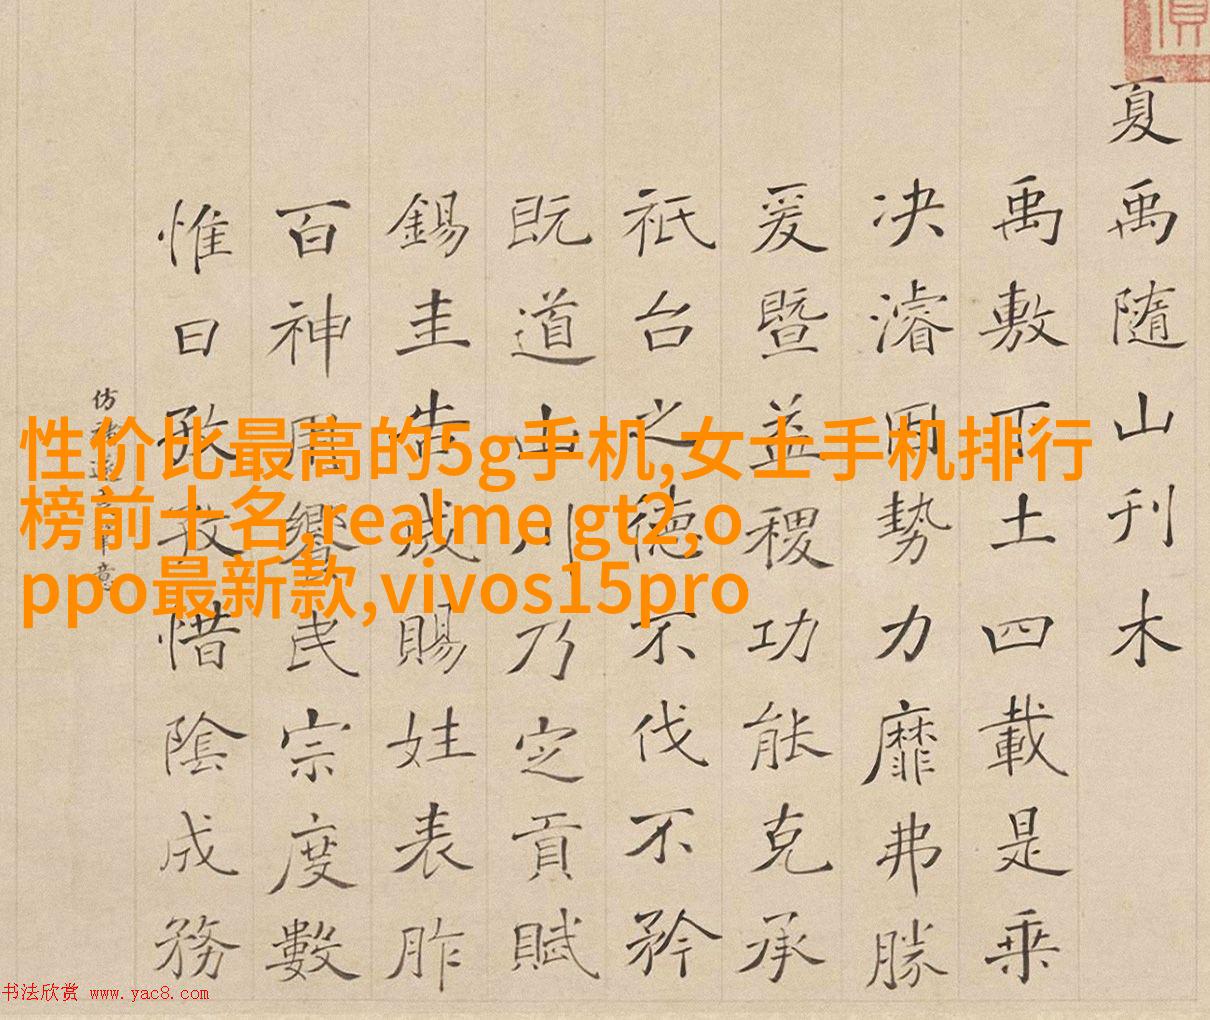 夏禹隨山刊木
禹敷下土四載是乘
决濬因勢力靡弗勝
爰暨益稷功能克承
祇台之德不伐不矜
既道山川乃定貢賦
錫圭告成賜姓表胙
百神用饗民宗度數
惟日孜孜惜陰成務
仿遂意
性价比最高的5g手机,女士手机排行
榜前十名,realme gt2,o
ppo最新款,vivos15pro
书法欣赏 www.yac8.com